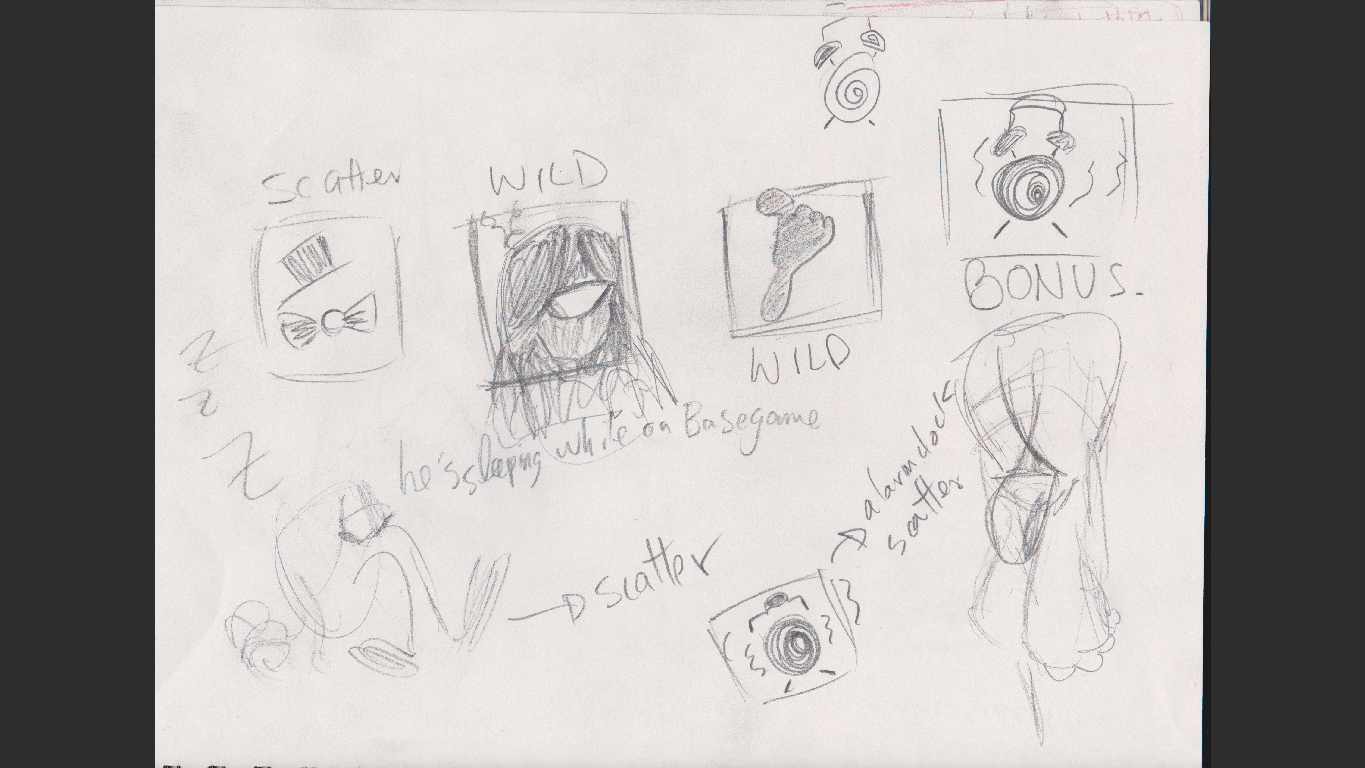 scatter
WILD
WILD
BONUS.
z
z
z
he's sleeping while on Basegame
alarm clock
scatter
scatter